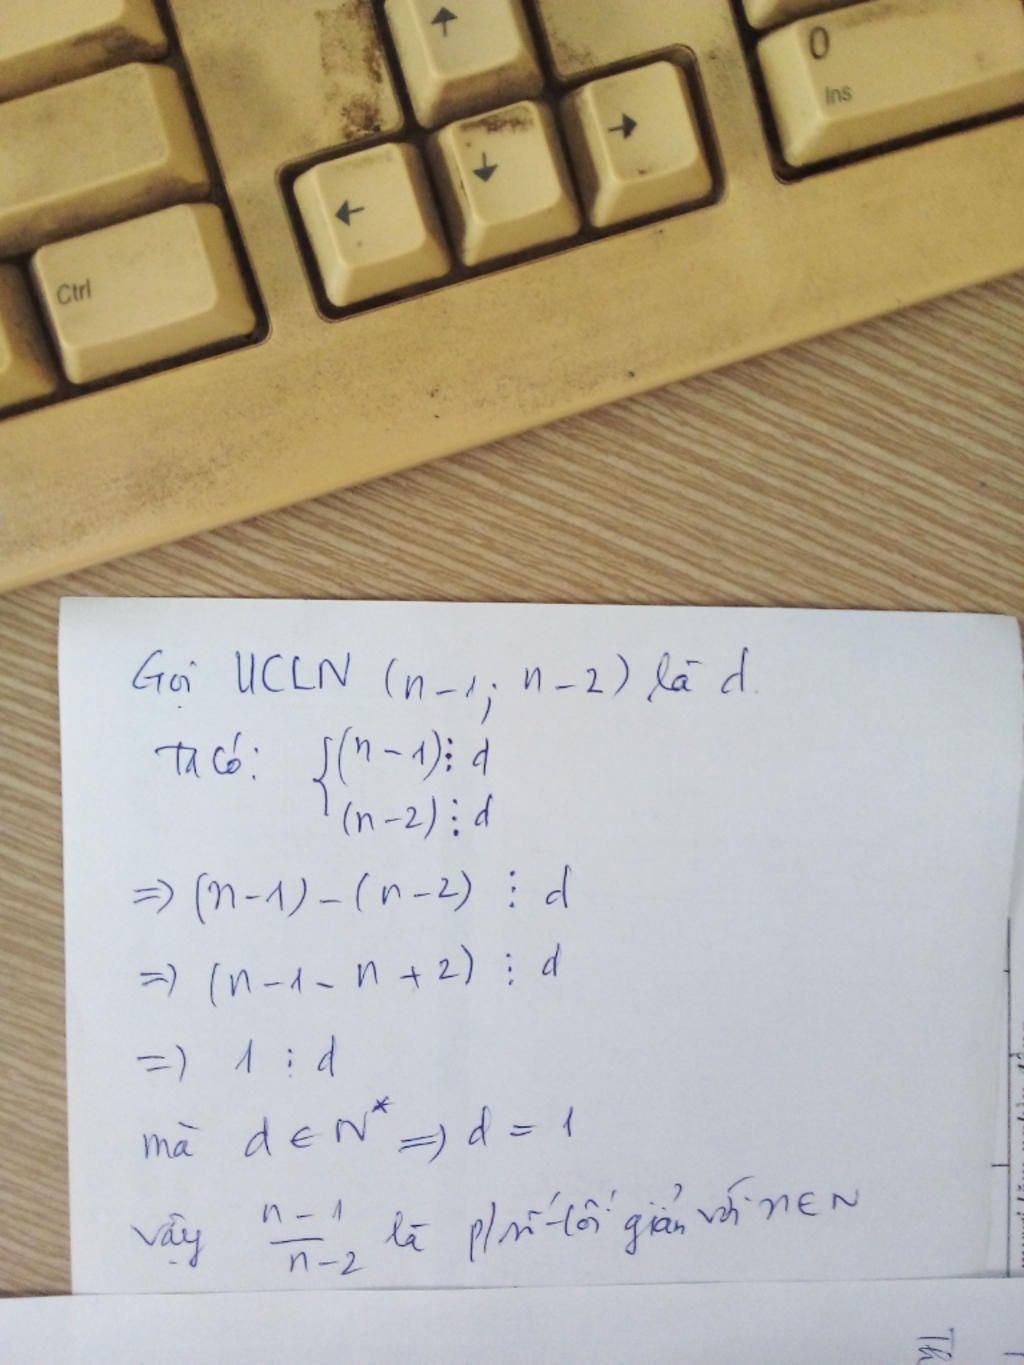 ↑
0
Ins
← ↓ →
Ctrl
Gọi ƯCLN (n-1; n-2) là d.
Ta có: {(n-1)⋮d
(n-2)⋮d
=> (n-1)-(n-2) ⋮ d
=> (n-1-n+2) ⋮ d
=> 1 ⋮ d
mà d ∈ N* => d = 1
vậy n-1/n-2 là p/số tối giản với n∈N
Th